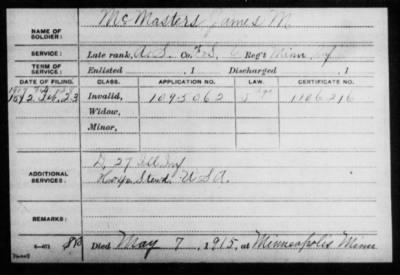 NAME OF SOLDIER: McMasters James M
SERVICE: Late rank, A.S. Co. Reg't Minn Inf
TERM OF SERVICE: Enlisted , 1 Discharged , 1
DATE OF FILING. CLASS. APPLICATION NO. LAW. CERTIFICATE NO.
Invalid, 1095062 1106216
Widow,
Minor,
ADDITIONAL SERVICES: D, 27 Ill Inf
Hosp. Stewd. USA.
REMARKS:
Died May 7, 1915, at Minneapolis Minn